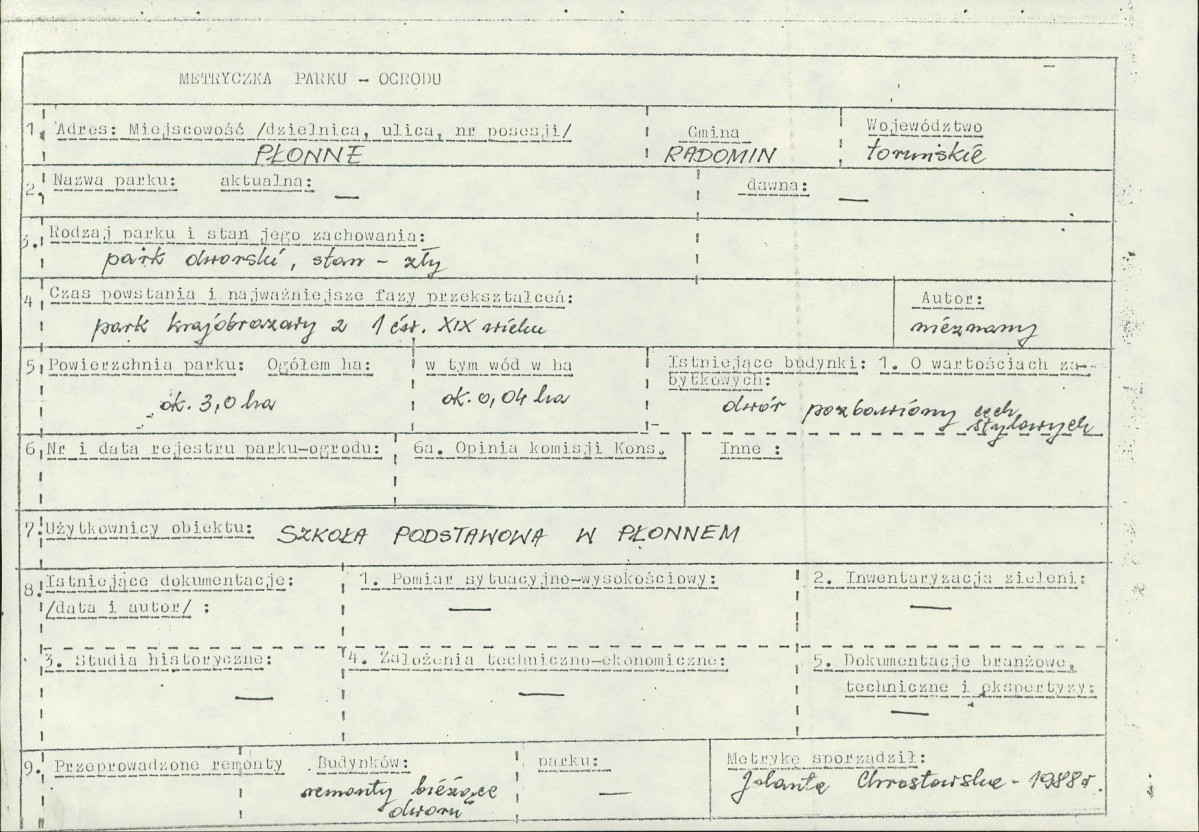 METRYCZKA PARKU - OGRODU
1. Adres: Miejscowość /dzielnica, ulica, nr posesji/
PŁONNE
Gmina
RADOMIN
Województwo
toruńskie
2. Nazwa parku: aktualna: —
dawna: —
3. Rodzaj parku i stan jego zachowania:
park dworski, stan - zły
4 Czas powstania i najważniejsze fazy przekształceń:
park krajobrazowy z 1 ćw. XIX wieku
Autor:
nieznany
5. Powierzchnia parku: Ogółem ha:
ok. 3,0 ha
w tym wód w ha
ok. 0,04 ha
Istniejące budynki: 1. O wartościach za-
bytkowych:
dwór pozbawiony cech
stylowych
6. Nr i data rejestru parku-ogrodu:
6a. Opinia komisji Kons.
Inne :
7. Użytkownicy obiektu: SZKOŁA PODSTAWOWA W PŁONNEM
8. Istniejące dokumentacje:
/data i autor/ :
1. Pomiar sytuacyjno-wysokościowy:
—
2. Inwentaryzacja zieleni:
—
3. Studia historyczne:
—
4. Założenia techniczno-ekonomiczne:
—
5. Dokumentacje branżowe,
techniczne i ekspertyzy:
—
9. Przeprowadzone remonty
Budynków:
remonty bieżące
dworu
parku:
—
Metrykę sporządził:
Jolanta Chrostowska - 1988r.